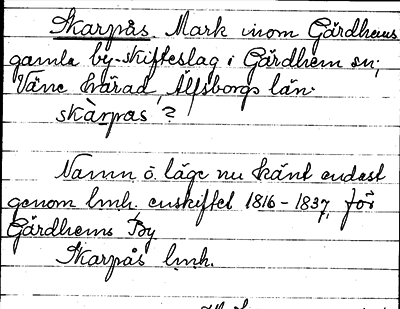 Skarpås. Mark inom Gärdhems
gamla by-skifteslag i Gärdhem sn;
Väne härad, Älfsborgs län.
skàrpas ?
Namn o. läge nu känt endast
genom lmh. enskiftet 1816-1837, för
Gärdhems By
Skarpås lmh.